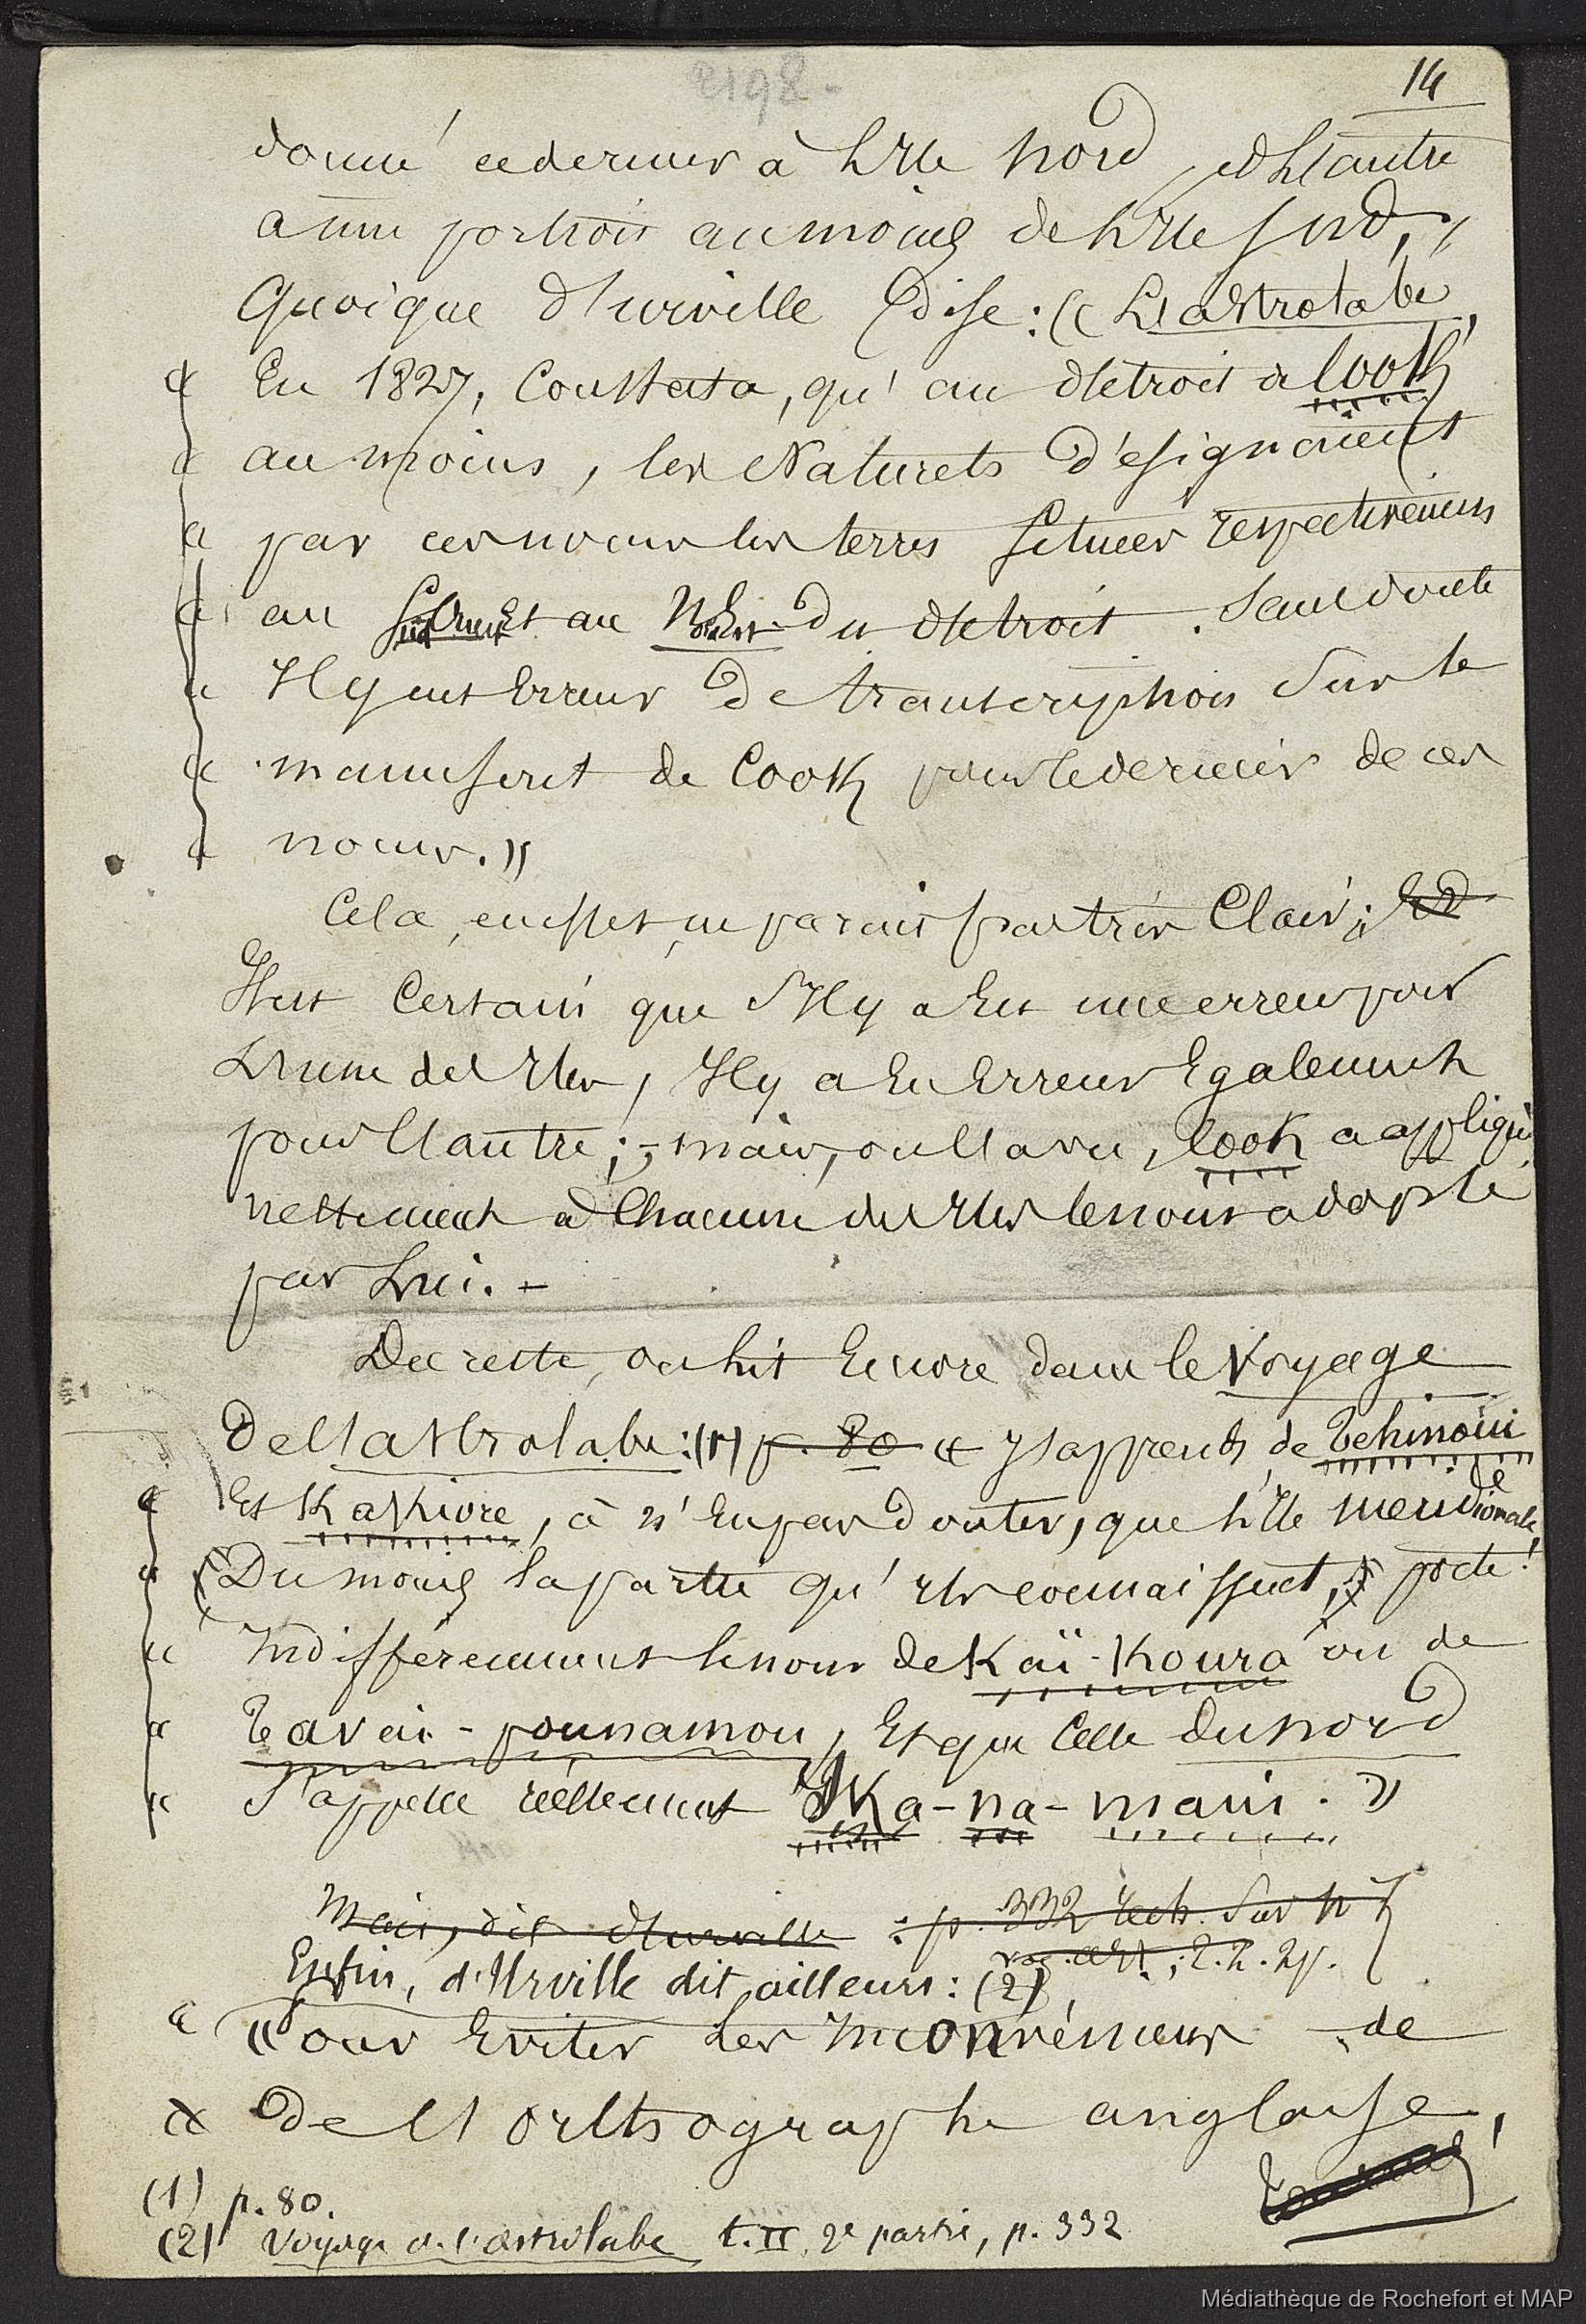 2198.
14
donné ce dernier à l'Ile nord, et l'autre
à une portion au moins de l'Ile sud, "
Quoique d'urville dise : « L'astrolabe,
« En 1827, Constata, qu'au détroit de Cook
« au moins, les Naturels désignaient
« par ces noms les terres situées respectivement
« au Sud Ouest au N. Est du détroit. Sans doute
« Il y eut Erreur de transcription sur le
« manuscrit de Cook pour le dernier de ces
« noms. »
Cela, en effet, ne parait pas très Clair ; Et
Il est Certain que S'Il y a Eu une erreur pour
L'une des Iles, Il y a Eu Erreur Egalement
pour l'autre ; - mais, on l'a vu, Cook a appliqué
nettement à Chacune des Iles le nom adopté
par Lui. -
Du reste, on lit Encore dans le Voyage
De l'astrolabe : (1) p. 80 « J'appends de Tehinoui
« Et Kakiore, à n'En pas Douter, que l'Ile méridionale,
« (Du moins la partie qu'Ils connaissent, porte
« Indifféremment le nom de Kaï-Koura ou de
« Tavaï-pounamou, Et que Celle du nord
« S'appelle réellement Ika-na-mawi. »
Mais, dit d'urville : p. 332 rech. Sur N Z
voy. ast. ; t. 2. 2p.
Enfin, d'Urville dit ailleurs : (2)
« « Pour Eviter Les Inconvénients de
« De l'orthographe anglaise,
(1) p. 80.
(2) Voyage de l'astrolabe t. II, 2e partie, p. 332
Médiathèque de Rochefort et MAP